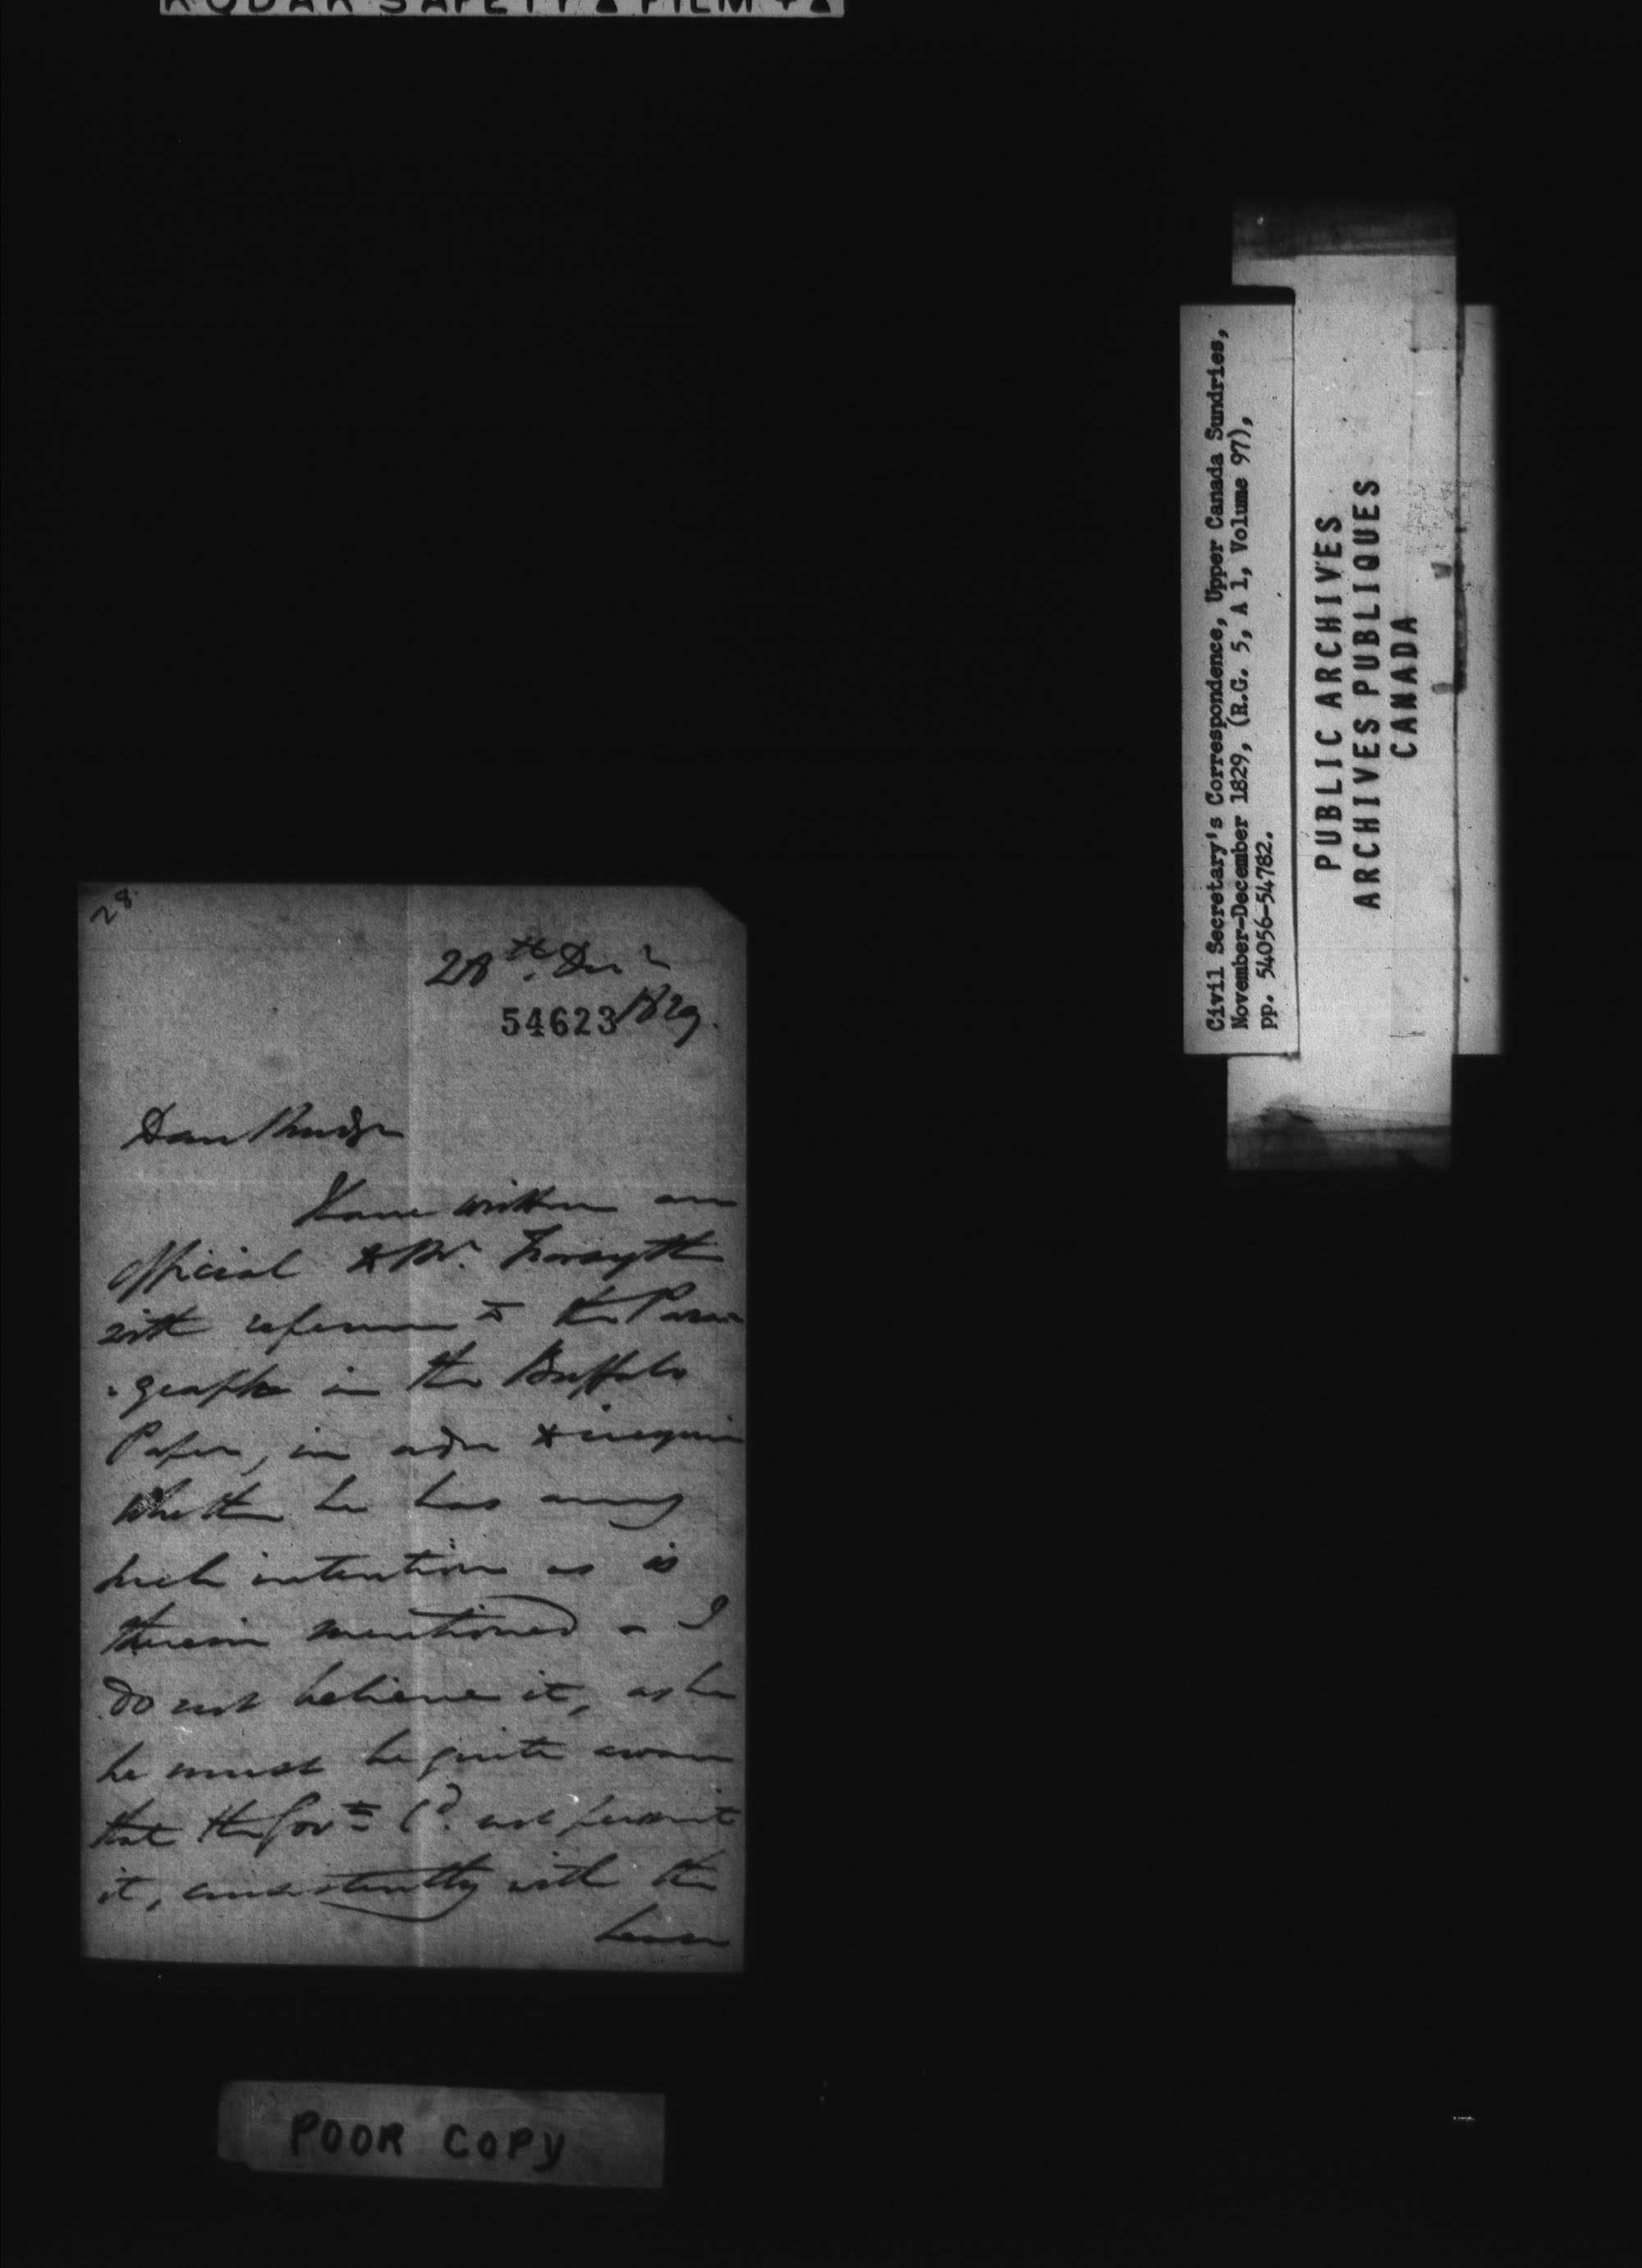 KODAK SAFETY FILM
28
28th Decr
54623 1829.
Dear Mudge
Have written an
official to Mr. Forsyth
with reference to the Para-
-graph in the Buffalo
Paper, in order to inquire
whether he has any
such intention as is
therein mentioned - I
do not believe it, as he
he must be quite aware
that the Govt Cd. not permit
it, consistently with the
lease
POOR COPY
Civil Secretary's Correspondence, Upper Canada Sundries,
November-December 1829, (R.G. 5, A 1, Volume 97),
pp. 54056-54782.
PUBLIC ARCHIVES
ARCHIVES PUBLIQUES
CANADA